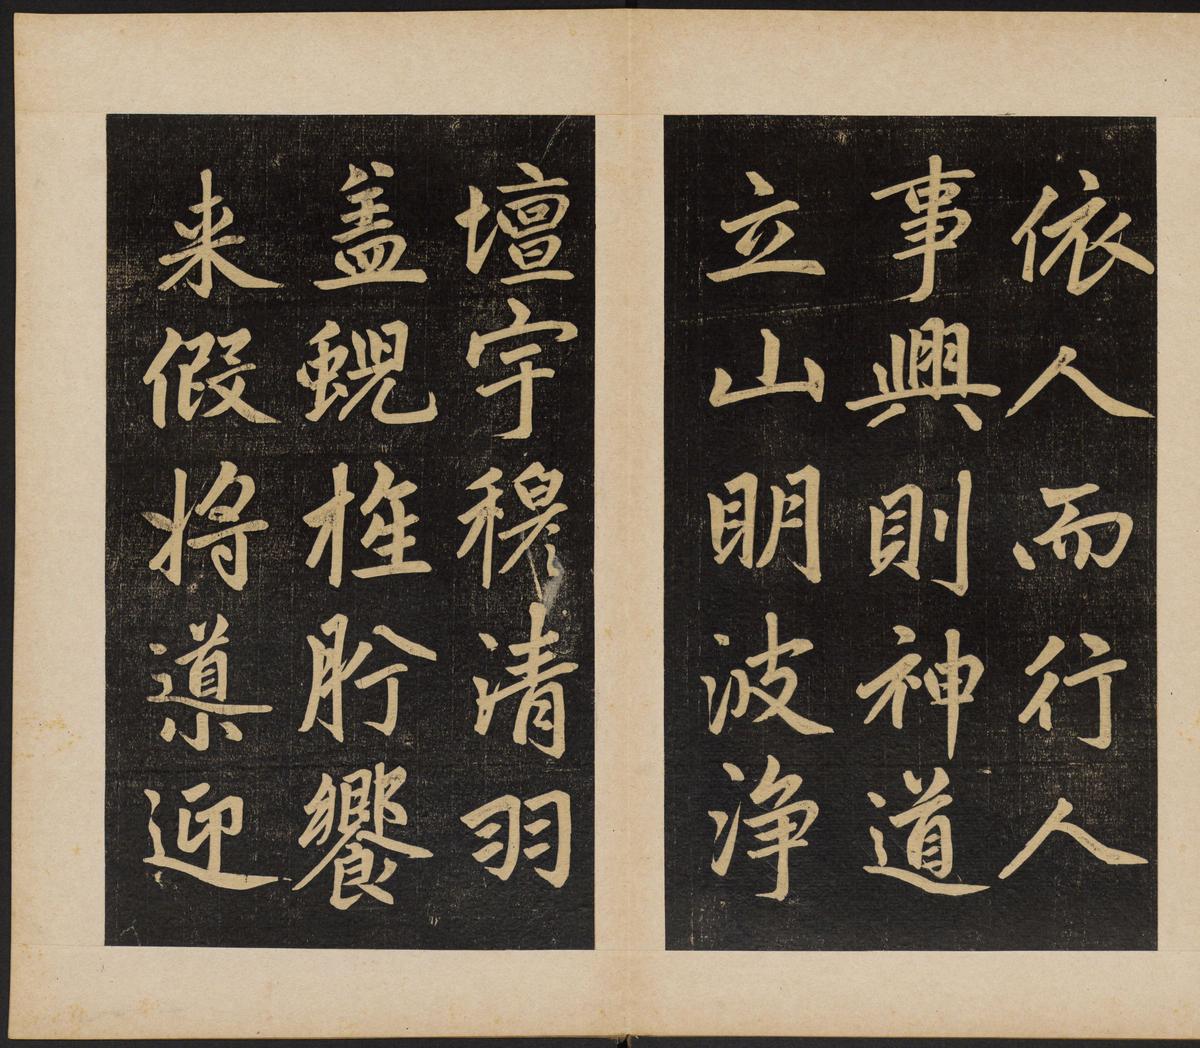 依人而行人
事興則神道
立山明波浄
壇宇穆清羽
盖蜺旌肹饗
来假将導迎